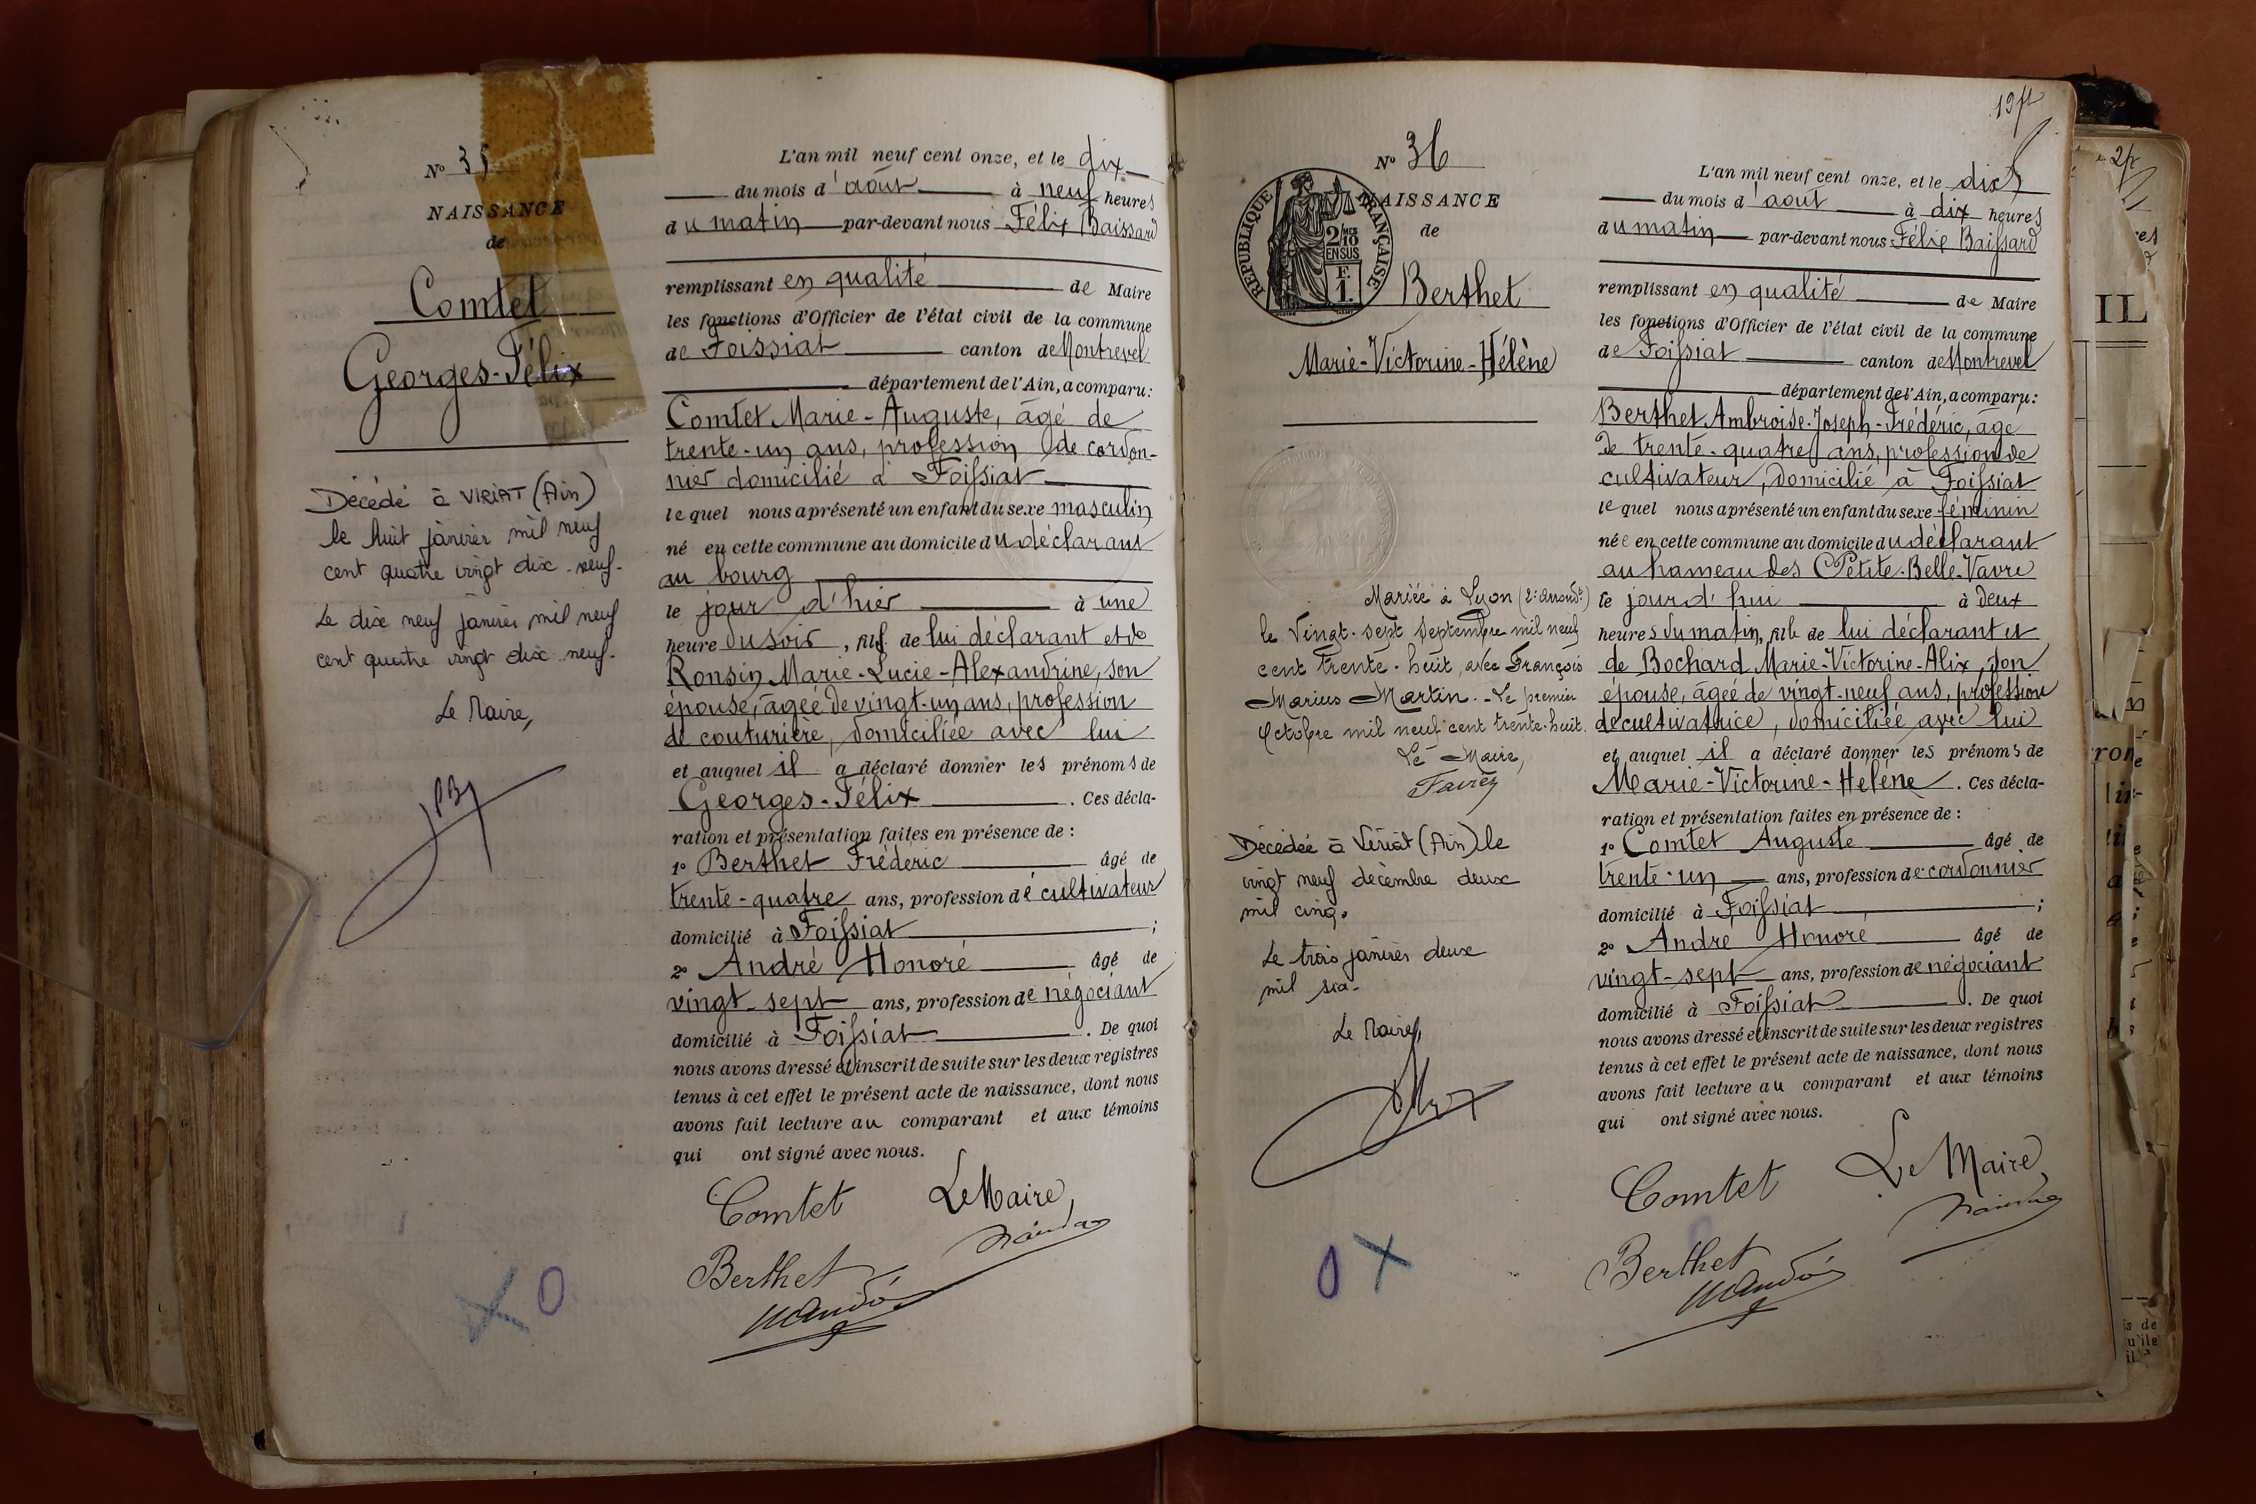 N° 35
NAISSANCE
de
Comtet
Georges-Félix
Décédé à VIRIAT (Ain)
le huit janvier mil neuf
cent quatre vingt dix-neuf.
Le dix neuf janvier mil neuf
cent quatre vingt dix neuf.
Le Maire,
L'an mil neuf cent onze, et le dix
du mois d'août à neuf heures
du matin par-devant nous Félix Baissard
remplissant en qualité de Maire
les fonctions d'Officier de l'état civil de la commune
de Foissiat canton de Montrevel
département de l'Ain, a comparu:
Comtet Marie-Auguste, âgé de
trente-un ans, profession de cordon-
nier domicilié à Foissiat
lequel nous a présenté un enfant du sexe masculin
né en cette commune au domicile du déclarant
au bourg
le jour d'hier à une
heure du soir, fils de lui déclarant et de
Ronsin Marie-Lucie-Alexandrine, son
épouse, âgée de vingt-un ans, profession
de couturière, domiciliée avec lui
et auquel il a déclaré donner les prénoms de
Georges-Félix. Ces décla-
ration et présentation faites en présence de :
1° Berthet Fréderic âgé de
trente-quatre ans, profession de cultivateur
domicilié à Foissiat ;
2° André Honoré âgé de
vingt-sept ans, profession de négociant
domicilié à Foissiat. De quoi
nous avons dressé et inscrit de suite sur les deux registres
tenus à cet effet le présent acte de naissance, dont nous
avons fait lecture au comparant et aux témoins
qui ont signé avec nous.
Comtet Le Maire,
Berthet
X O
19 ft
N° 36
NAISSANCE
de
REPUBLIQUE FRANÇAISE
2/10
EN SUS
F.
1.
Berthet
Marie-Victorine-Hélène
Mariée à Lyon (2e arrondt)
le Vingt-sept Septembre mil neuf
cent trente-huit, avec François
Marius Martin. - Le premier
Octobre mil neuf cent trente-huit.
Le Maire,
Décédée à Viriat (Ain) le
vingt neuf décembre deux
mil cinq.
Le trois janvier deux
mil six.
Le Maire,
O X
L'an mil neuf cent onze, et le dix
du mois d'août à dix heures
du matin par-devant nous Félix Baissard
remplissant en qualité de Maire
les fonctions d'Officier de l'état civil de la commune
de Foissiat canton de Montrevel
département de l'Ain, a comparu:
Berthet Ambroise-Joseph-Frédéric, âgé
de trente-quatre ans, profession de
cultivateur, domicilié à Foissiat
lequel nous a présenté un enfant du sexe féminin
née en cette commune au domicile du déclarant
au hameau des Petite-Belle-Vavre
le jour d'hui à deux
heures du matin, fille de lui déclarant et
de Bochard Marie-Victorine-Alix, son
épouse, âgée de vingt-neuf ans, profession
de cultivatrice, domiciliée avec lui
et auquel il a déclaré donner les prénoms de
Marie-Victorine-Hélène. Ces décla-
ration et présentation faites en présence de :
1° Comtet Auguste âgé de
trente-un ans, profession de cordonnier
domicilié à Foissiat ;
2° André Honoré âgé de
vingt-sept ans, profession de négociant
domicilié à Foissiat. De quoi
nous avons dressé et inscrit de suite sur les deux registres
tenus à cet effet le présent acte de naissance, dont nous
avons fait lecture au comparant et aux témoins
qui ont signé avec nous.
Comtet Le Maire,
Berthet
IL